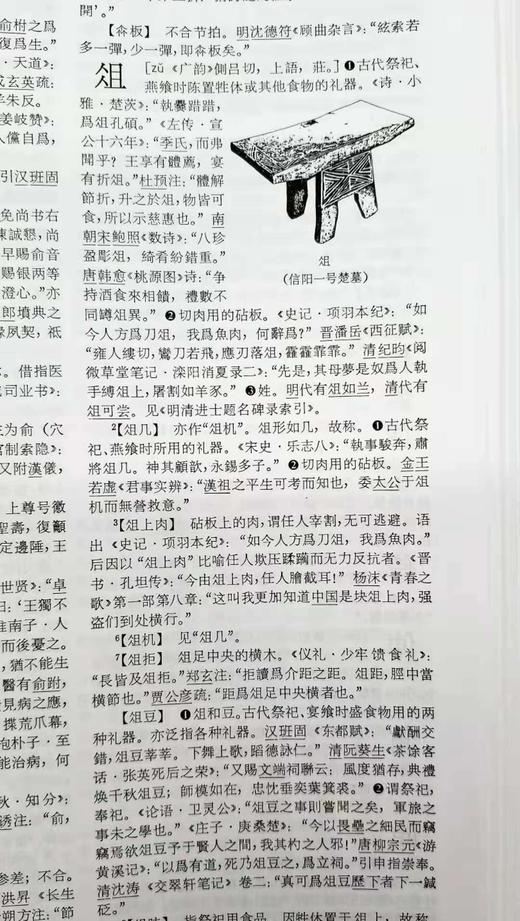 俞柎之爲
復爲生。”
·天道》：
成玄英疏：
羊朱反。
姜岐赞》：
人儻自爲，
引汉班固
免尚书右
陳誠懇，尚
早賜俞音
赐银两等
澄心。”亦
郎墳典之
緣夙契，祗
借指医
司业书》：
主为俞（穴
官制索隐》：
又附漢儀，
上尊号徽
聖壽，復
定邊陲，王
世贤》：“卓
曰：‘王獨不
淮南子·人
而後憂之。
，猶不能生
醫有俞跗，
見病之應，
揲荒爪幕，
抱朴子·至
能治病，何
秋·知分》：
誘注：“俞，
參差；不合。
洪昇《长生
朔方注：“節
開’。”
【俞板】 不合节拍。明沈德符《顾曲杂言》：“絃索若
多一彈，少一彈，即俞板矣。”
俎 [zǔ 《广韵》側吕切，上語，莊。] ❶古代祭祀、
燕飨时陈置牲体或其他食物的礼器。《诗·小
雅·楚茨》：“執爨踖踖，
爲俎孔碩。”《左传·宣
公十六年》：“季氏，而弗
聞乎？王享有體薦，宴
有折俎。”杜预注：“體解
節折，升之於俎，物皆可
食，所以示慈惠也。”南
朝宋鲍照《数诗》：“八珍
盈彫俎，綺肴紛錯重。”
唐韩愈《桃源图》诗：“争
持酒食來相饋，禮數不
同罇俎異。”❷切肉用的砧板。《史记·项羽本纪》：“如
俎
（信阳一号楚墓）
今人方爲刀俎，我爲魚肉，何辭爲？”晋潘岳《西征赋》：
“雍人縷切，鸞刀若飛，應刃落俎，霍霍霏霏。”清纪昀《阅
微草堂笔记·滦阳消夏录二》：“先是，其母夢是奴爲人執
手縛俎上，屠割如羊豕。”❸姓。明代有俎如兰，清代有
俎可尝。见《明清进士题名碑录索引》。
²【俎几】 亦作“俎机”。俎形如几，故称。❶古代祭
祀、燕飨时所用的礼器。《宋史·乐志八》：“執事駿奔，肅
將俎几。神其顧歆，永錫多子。”❷切肉用的砧板。金王
若虚《君事实辨》：“漢祖之平生可考而知也，委太公于俎
机而無營救意。”
³【俎上肉】 砧板上的肉，谓任人宰割，无可逃避。语
出《史记·项羽本纪》：“如今人方爲刀俎，我爲魚肉。”
后因以“俎上肉”比喻任人欺压蹂躏而无力反抗者。《晋
书·孔坦传》：“今由俎上肉，任人膾截耳！”杨沫《青春之
歌》第一部第八章：“这叫我更加知道中国是块俎上肉，强
盗们到处横行。”
⁶【俎机】 见“俎几”。
⁷【俎拒】 俎足中央的横木。《仪礼·少牢馈食礼》：
“長皆及俎拒。”郑玄注：“拒讀爲介距之距。俎距，脛中當
横節也。”贾公彦疏：“距爲俎足中央横者也。”
【俎豆】 ❶俎和豆。古代祭祀、宴飨时盛食物用的两
种礼器。亦泛指各种礼器。汉班固《东都赋》：“獻酬交
錯，俎豆莘莘。下舞上歌，蹈德詠仁。”清阮葵生《茶馀客
话·张英死后之荣》：“又賜文端祠聯云：風度猶存，典禮
焕千秋俎豆；師模如在，忠忱垂奕葉箕裘。”❷谓祭祀，
奉祀。《论语·卫灵公》：“俎豆之事則嘗聞之矣，軍旅之
事未之學也。”《庄子·庚桑楚》：“今以畏壘之細民而竊
竊焉欲俎豆予于賢人之間，我其杓之人邪！”唐柳宗元《游
黄溪记》：“以爲有道，死乃俎豆之，爲立祠。”引申指崇奉。
清沈涛《交翠轩笔记》卷二：“真可爲俎豆歷下者下一鍼
砭。”